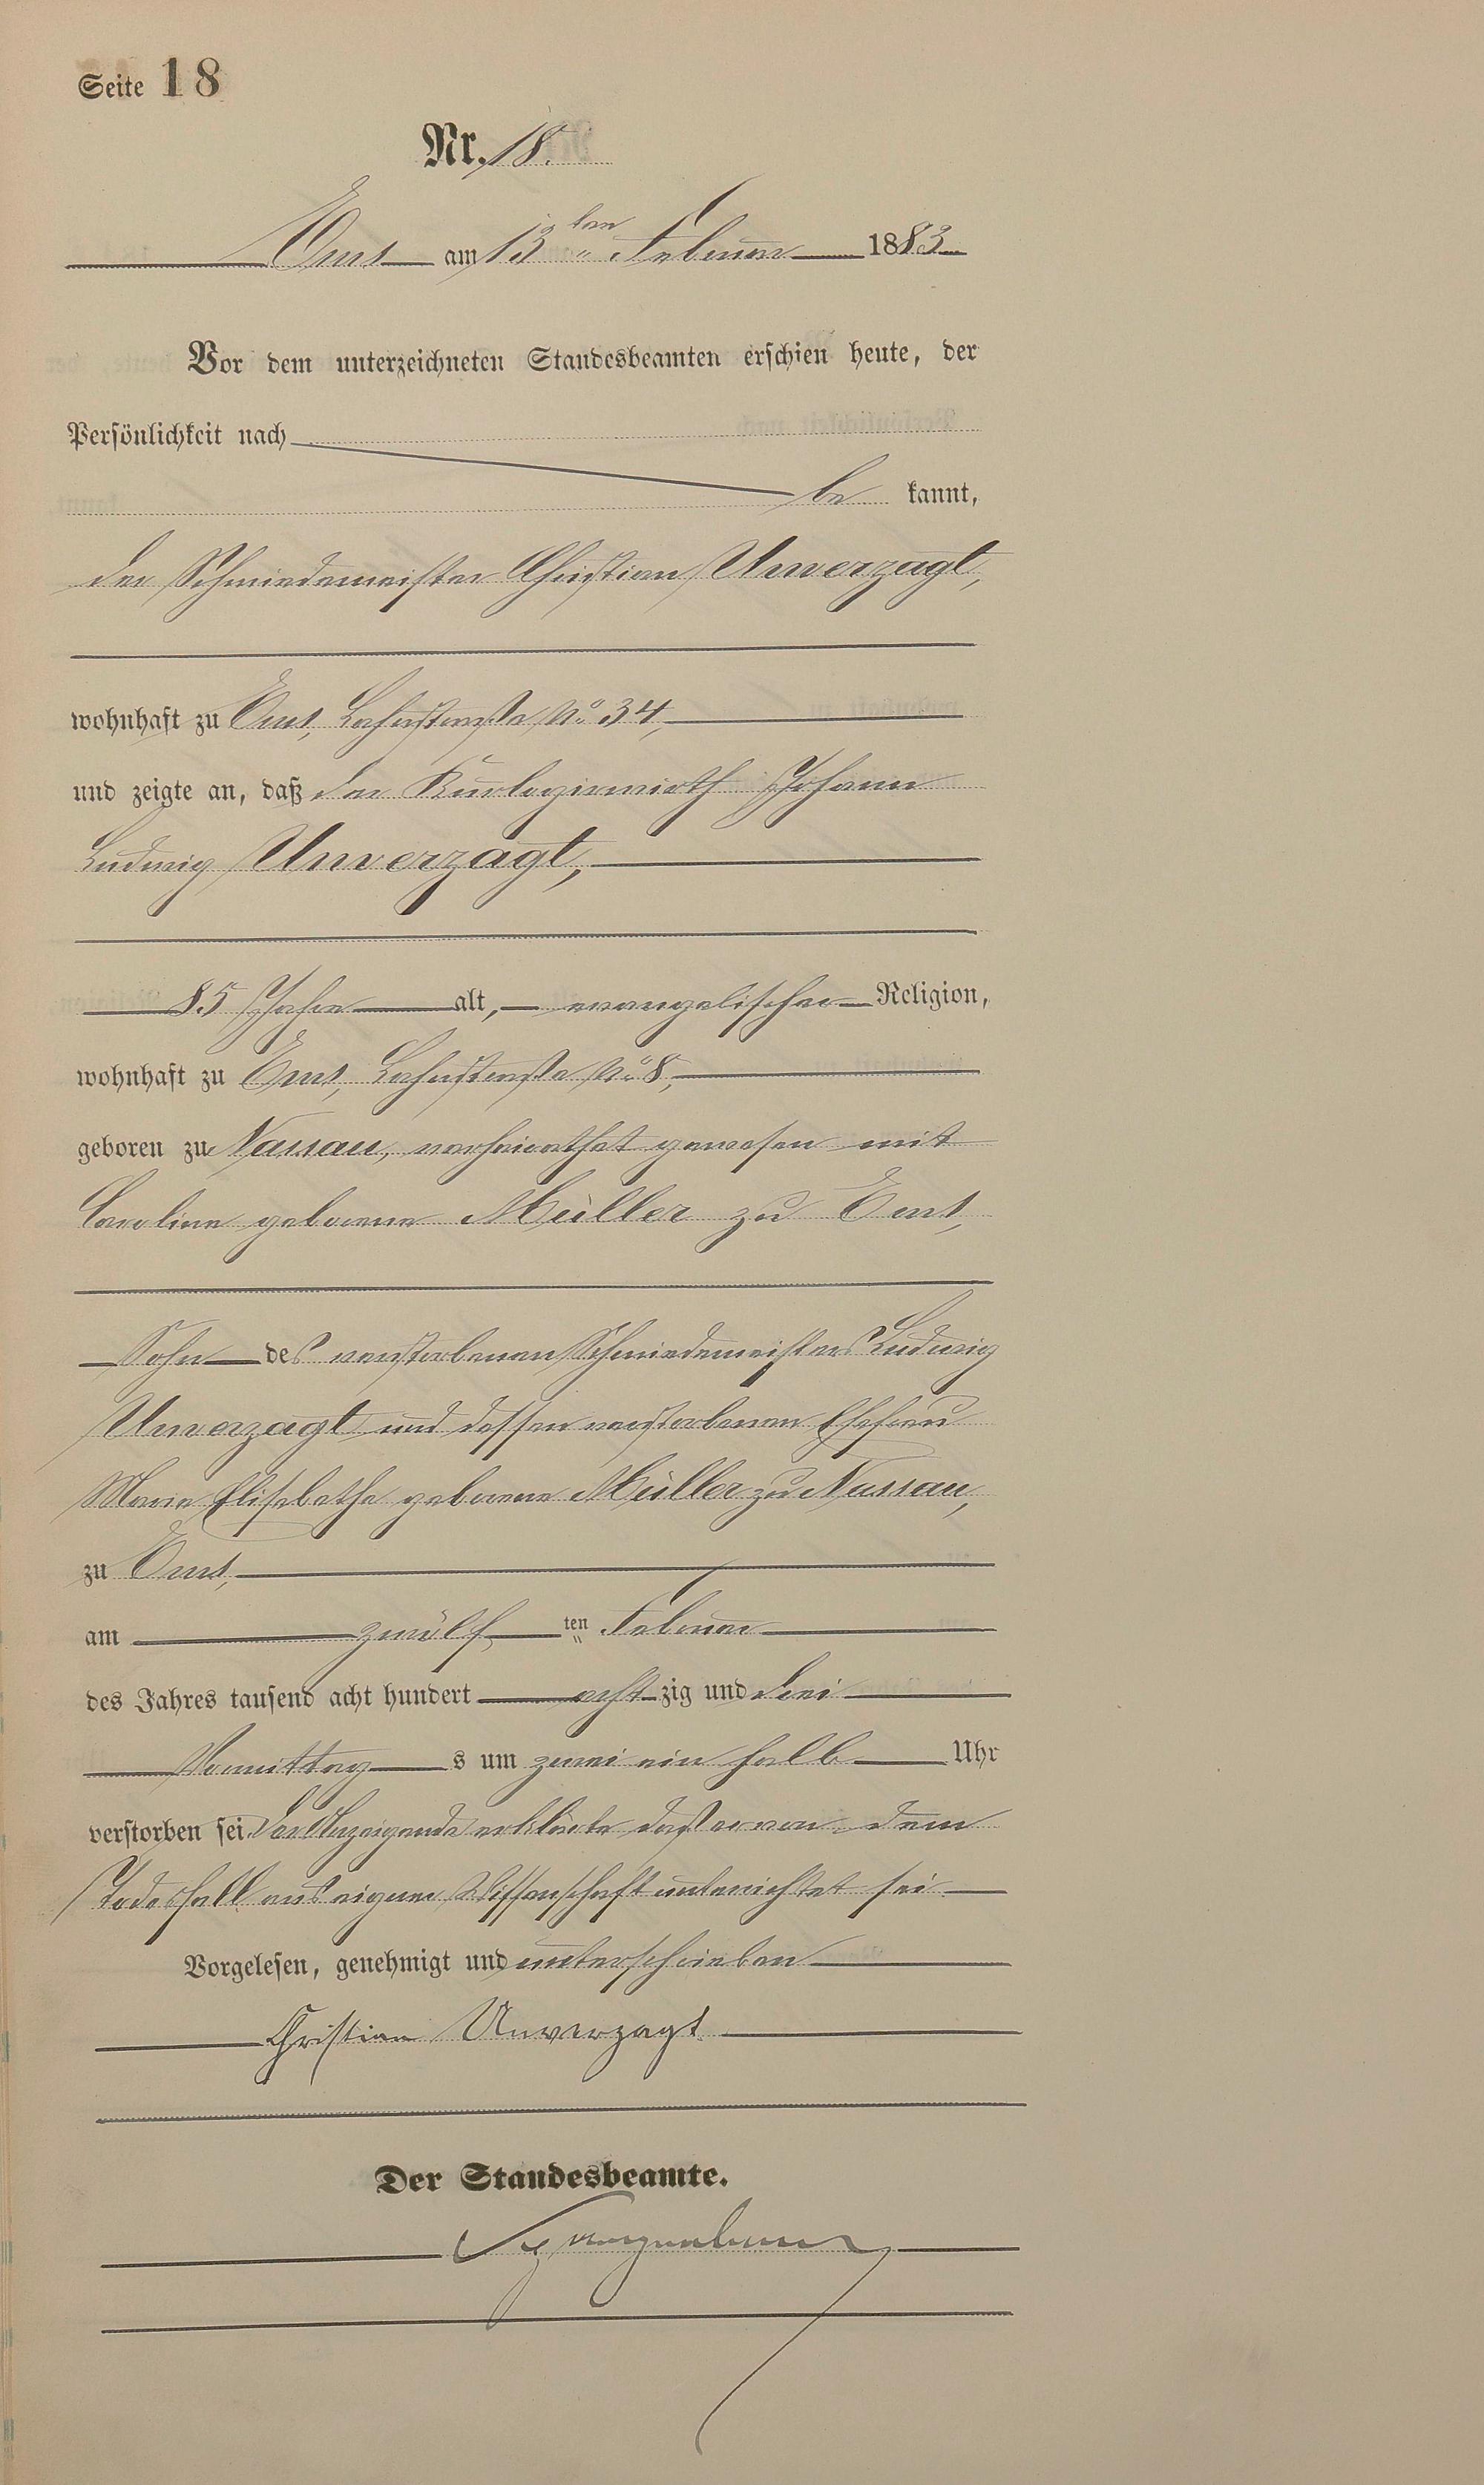 Seite 18
Nr. 18.
Ems am 13ten Februar 1883
Vor dem unterzeichneten Standesbeamten erschien heute, der
Persönlichkeit nach
be kannt,
der Schmiedemeister Christian Unverzagt,
wohnhaft zu Ems, Lahnstraße No. 34,
und zeigte an, daß der Kurlogirwirth Johann
Ludwig Unverzagt,
85 Jahre alt, evangelischer Religion,
wohnhaft zu Ems, Lahnstraße No. 8,
geboren zu Nassau, verheirathet gewesen mit
Caroline geborene Müller zu Ems,
Sohn des verstorbenen Schmiedemeisters Ludwig
Unverzagt und dessen verstorbenen Ehefrau
Marie Elisabethe geborene Müller zu Nassau,
zu Ems,
am zwölf ten Februar
des Jahres tausend acht hundert acht zig und drei
Vormittag s um zwei ein halb Uhr
verstorben sei. Der Anzeigende erklärte daß er von dem
Todesfall aus eigner Wissenschaft unterrichtet sei
Vorgelesen, genehmigt und unterschrieben
Christian Unverzagt
Der Standesbeamte.